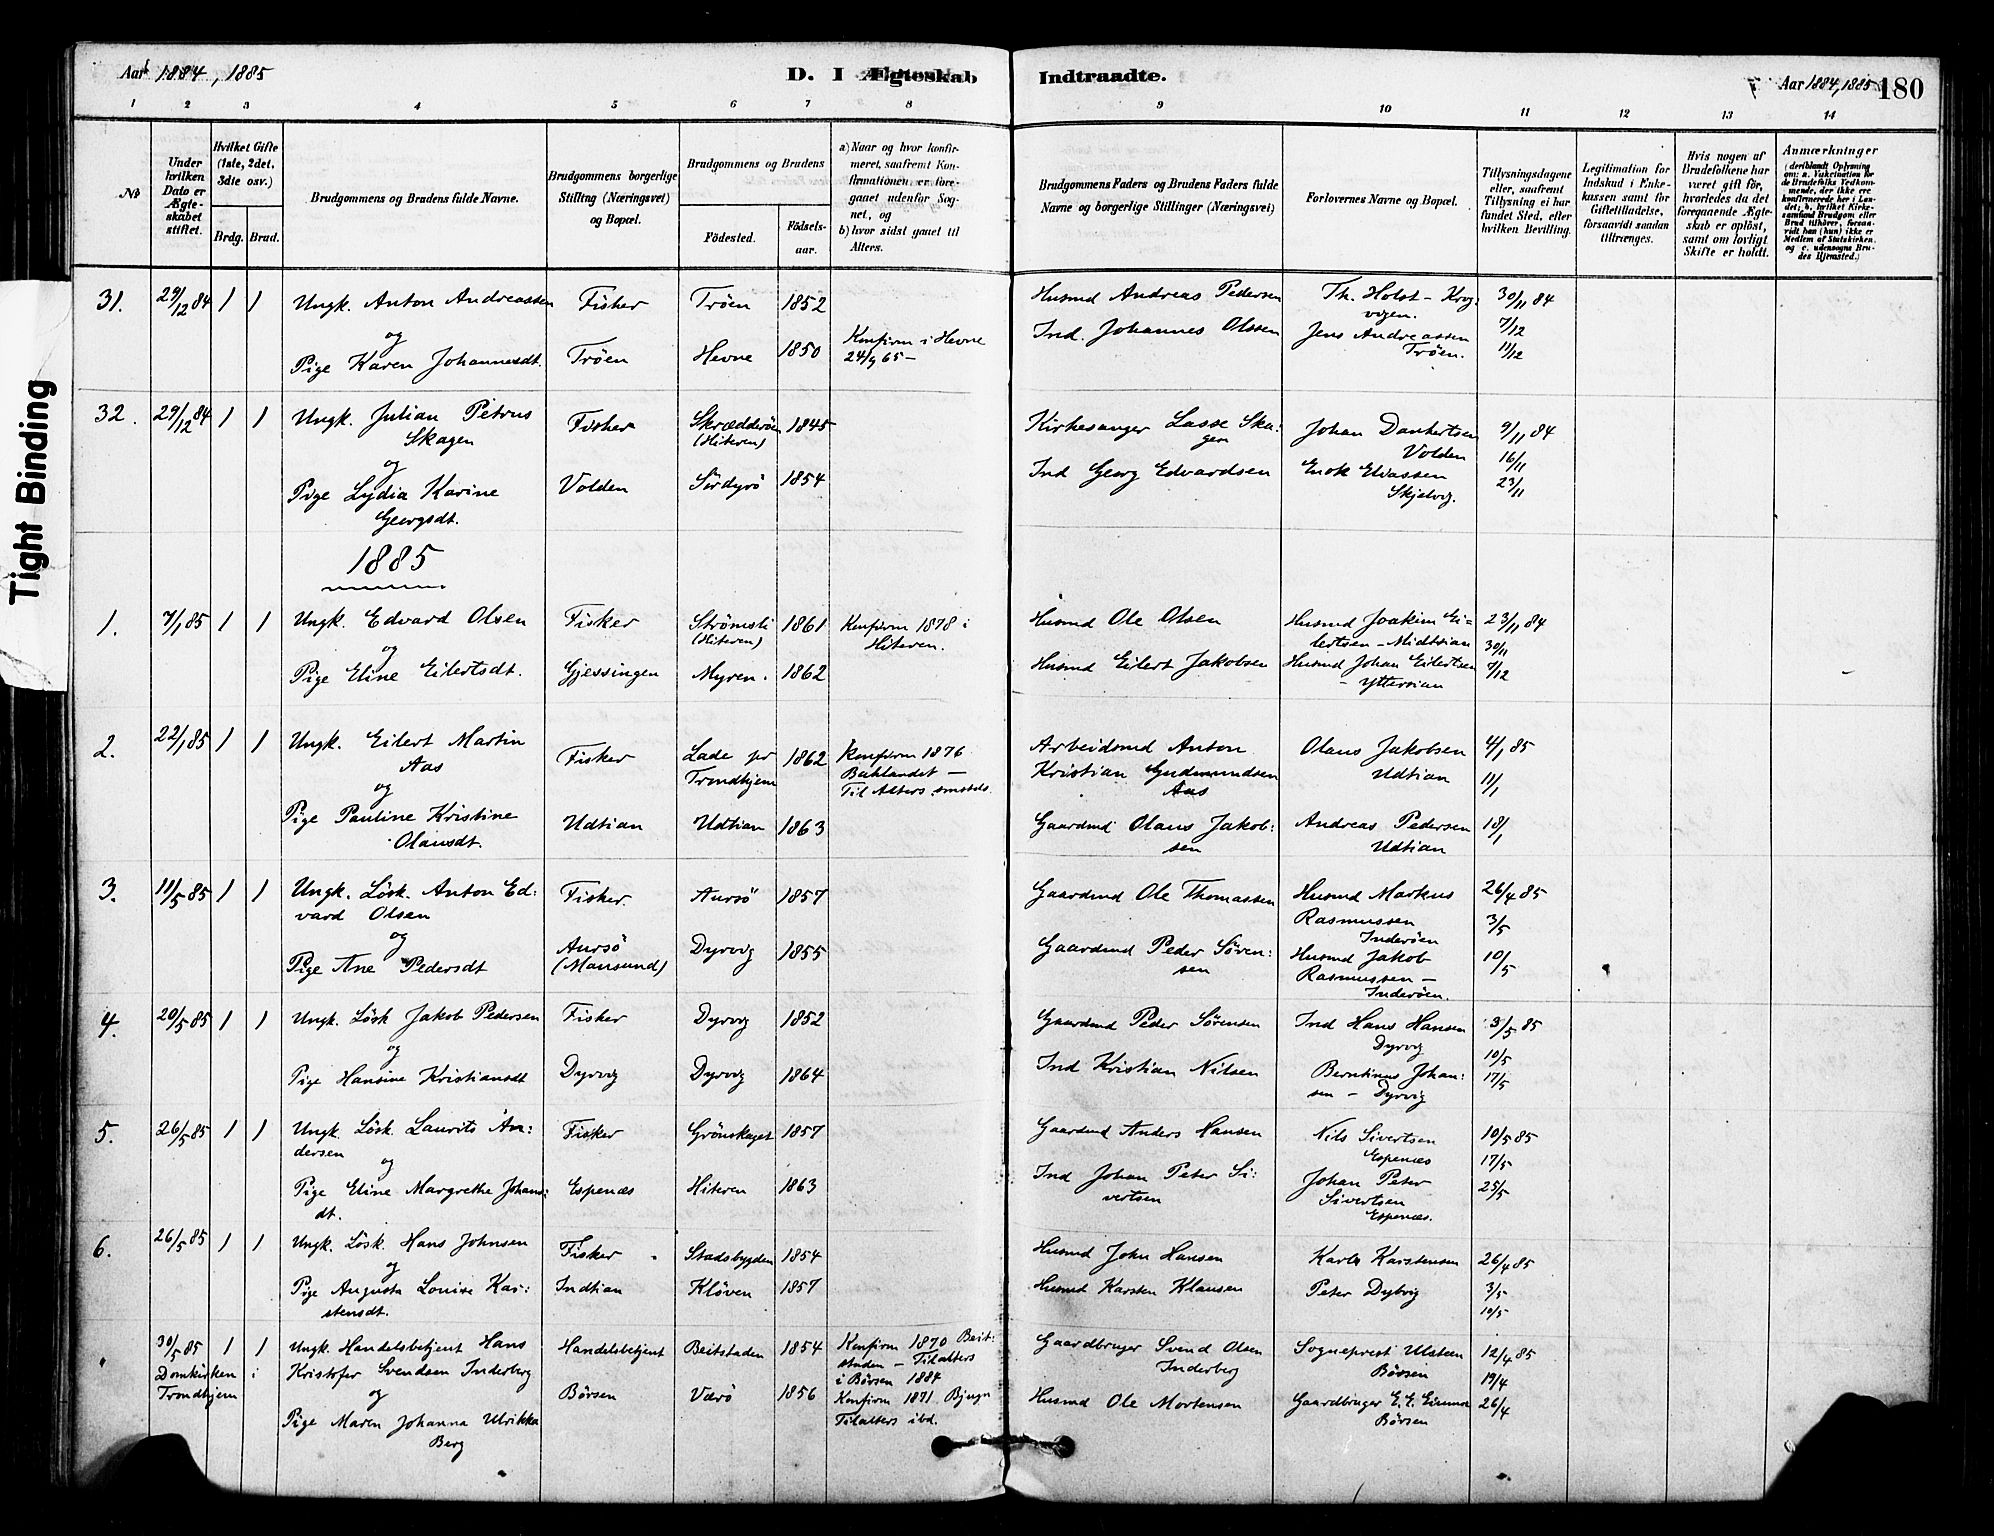 Tight Binding
Aar 1884, 1885
D. I Ægteskab Indtraadte.
Aar 1884, 1885 180
1 2 3 4 5 6 7 8 9 10 11 12 13 14
No
Under hvilken Dato er Ægteskabet stiftet.
Hvilket Gifte (1ste, 2det, 3die osv.)
Brdg. Brud.
Brudgommens og Brudens fulde Navne.
Brudgommens borgerlige Stilling (Næringsvei) og Bopæl.
Brudgommens og Brudens
Fødested.
Fødselsaar.
a) Naar og hvor konfirmeret, saafremt Konfirmationen er foregaaet udenfor Sognet, og
b) hvor sidst gaaet til Alters.
Brudgommens Faders og Brudens Faders fulde Navne og borgerlige Stillinger (Næringsvei)
Forlovernes Navne og Bopæl.
Tillysningsdagene eller, saafremt Tillysning ei har fundet Sted, efter hvilken Bevilling.
Legitimation for Indskud i Enkekassen samt for Giftetilladelse, forsaavidt saadan tiltrænges.
Hvis nogen af Brudefolkene har været gift før, hvorledes da det foregaaende Ægteskab er opløst, samt om lovligt Skifte er holdt.
Anmærkninger
(deriblandt Oplysning om: a. Vakcination for de Brudefolks Vedkommende, der ikke ere konfirmerede her i Landet; b. hvilket Kirkesamfund Brudgom eller Brud tilhører, forsaavidt han (hun) ikke er Medlem af Statskirken, og c. udensogns Brudes Hjemsted.)
31. 29/12 84 1 1 Ungk. Anton Andreassen Fisker Trøen 1852 Husmd Andreas Pedersen Th. Holst - Krog- 30/11 84
og vogen. 7/12
Pige Karen Johannesdt. Trøen Hevne 1850 Konfirm i Hevne 24/9 65 - Ind. Johannes Olssen Jens Andreassen Trøen. 11/12
32. 29/12 84 1 1 Ungk. Julian Petrus Skagen Fisker Skrædderøen (Hiteren) 1845 Kirkesanger Lasse Skagen Johan Dankertsen Volden 9/11 84
og 16/11
Pige Lydia Karine Georgsdt. Volden Sørdyrø 1854 Ind Georg Edvardsen Enok Eliassen Skjelvig. 23/11
1885
1. 7/1 85 1 1 Ungk. Edvard Olsen Fisker Strømsli (Hiteren) 1861 Konfirm 1878 i Hiteren. Husmd Ole Olsen Husmd Joakim Eilertsen - Midtsian 23/11 84
og 30/11
Pige Eline Eilertsdt. Gjessingen Myren. 1862 Husmd Eilert Jakobsen Husmd Johan Eilertsen - Yttersian 7/12
2. 22/1 85 1 1 Ungk. Eilert Martin Aas Fisker Lade pr Trondhjem 1862 Konfirm 1876 Baklandet - Til Alters smsteds. Arbeidsmd Anton Kristian Gudmundsen Aas Olaus Jakobsen Udtian 4/1 85
og 11/1
Pige Pauline Kristine Olausdt. Udtian Udtian 1863 Gaardmd Olaus Jakobsen Andreas Pedersen Udtian 18/1
3. 11/5 85 1 1 Ungk. Løsk. Anton Edvard Olsen Fisker. Aursø 1857 Gaardmd Ole Thomassen Husmd Markus Rasmussen Inderøen 26/4 85
og 3/5
Pige Ane Pedersdt Aursø (Mausund) Dyrvig 1855 Gaardmd Peder Sørensen Husmd Jakob Rasmussen - Inderøen. 10/5
4. 20/5 85 1 1 Ungk. Løsk Jakob Pedersen Fisker Dyrvig 1852 Gaardmd Peder Sørensen Ind Hans Hansen Dyrvig 3/5 85
og 10/5
Pige Hansine Kristiansdt Dyrvig Dyrvig 1864 Ind Kristian Nilsen Berntinus Johansen - Dyrvig 17/5
5. 26/5 85 1 1 Ungk. Løsk. Laurits Andersen Fisker Grønskaget 1857 Gaardmd Anders Hansen Nils Sivertsen Espenæs 10/5 85
og 17/5
Pige Eline Margrethe Johansdt. Espenæs Hiteren 1863 Ind Johan Peter Sivertsen Johan Peter Sivertsen Espenæs. 25/5
6. 26/5 85 1 1 Ungk. Løsk. Hans Johnsen Fisker Stadsbygden 1854 Husmd John Hansen Karl Karstensen 26/4 85
og
Pige Augusta Louise Karstensdt. Indtian Kløven 1857 Husmd Karsten Klausen Peter Dybvig 3/5
10/5
" 30/5 85 Domkirken i Trondhjem 1 1 Ungk. Handelsbetjent Hans Kristofer Svendsen Inderberg Handelsbetjent Beitstaden 1854 Konfirm 1870 Beitstaden - Til alters i Børsen 1884 Gaardbruger Svend Olsen Inderberg Sogneprest Ulsteen Børsen 12/4 85
og 19/4
Pige Maren Johanna Ulrikka Berg Børsen Værø 1856 Konfirm 1871 Bjugn Til alters ibd. Husmd Ole Mortensen Gaardbruger E. E. Børsen 26/4